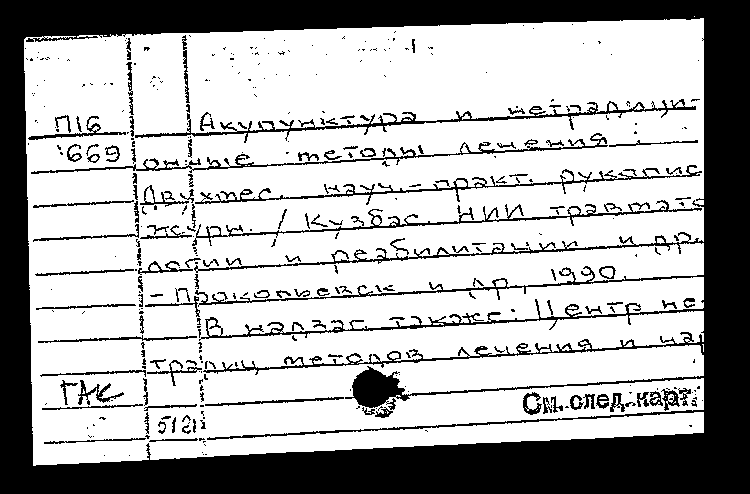 П16 Акупунктура и нетрадици-
669 онные методы лечения :
Двухмес. науч.-практ. рукопис
журн. / Кузбас. НИИ травмато
логии и реабилитации и др.
- Прокопьевск и др., 1990.
В надзаг. также: Центр не-
традиц методов лечения и нар
ГАС
См. след. карт.
5121